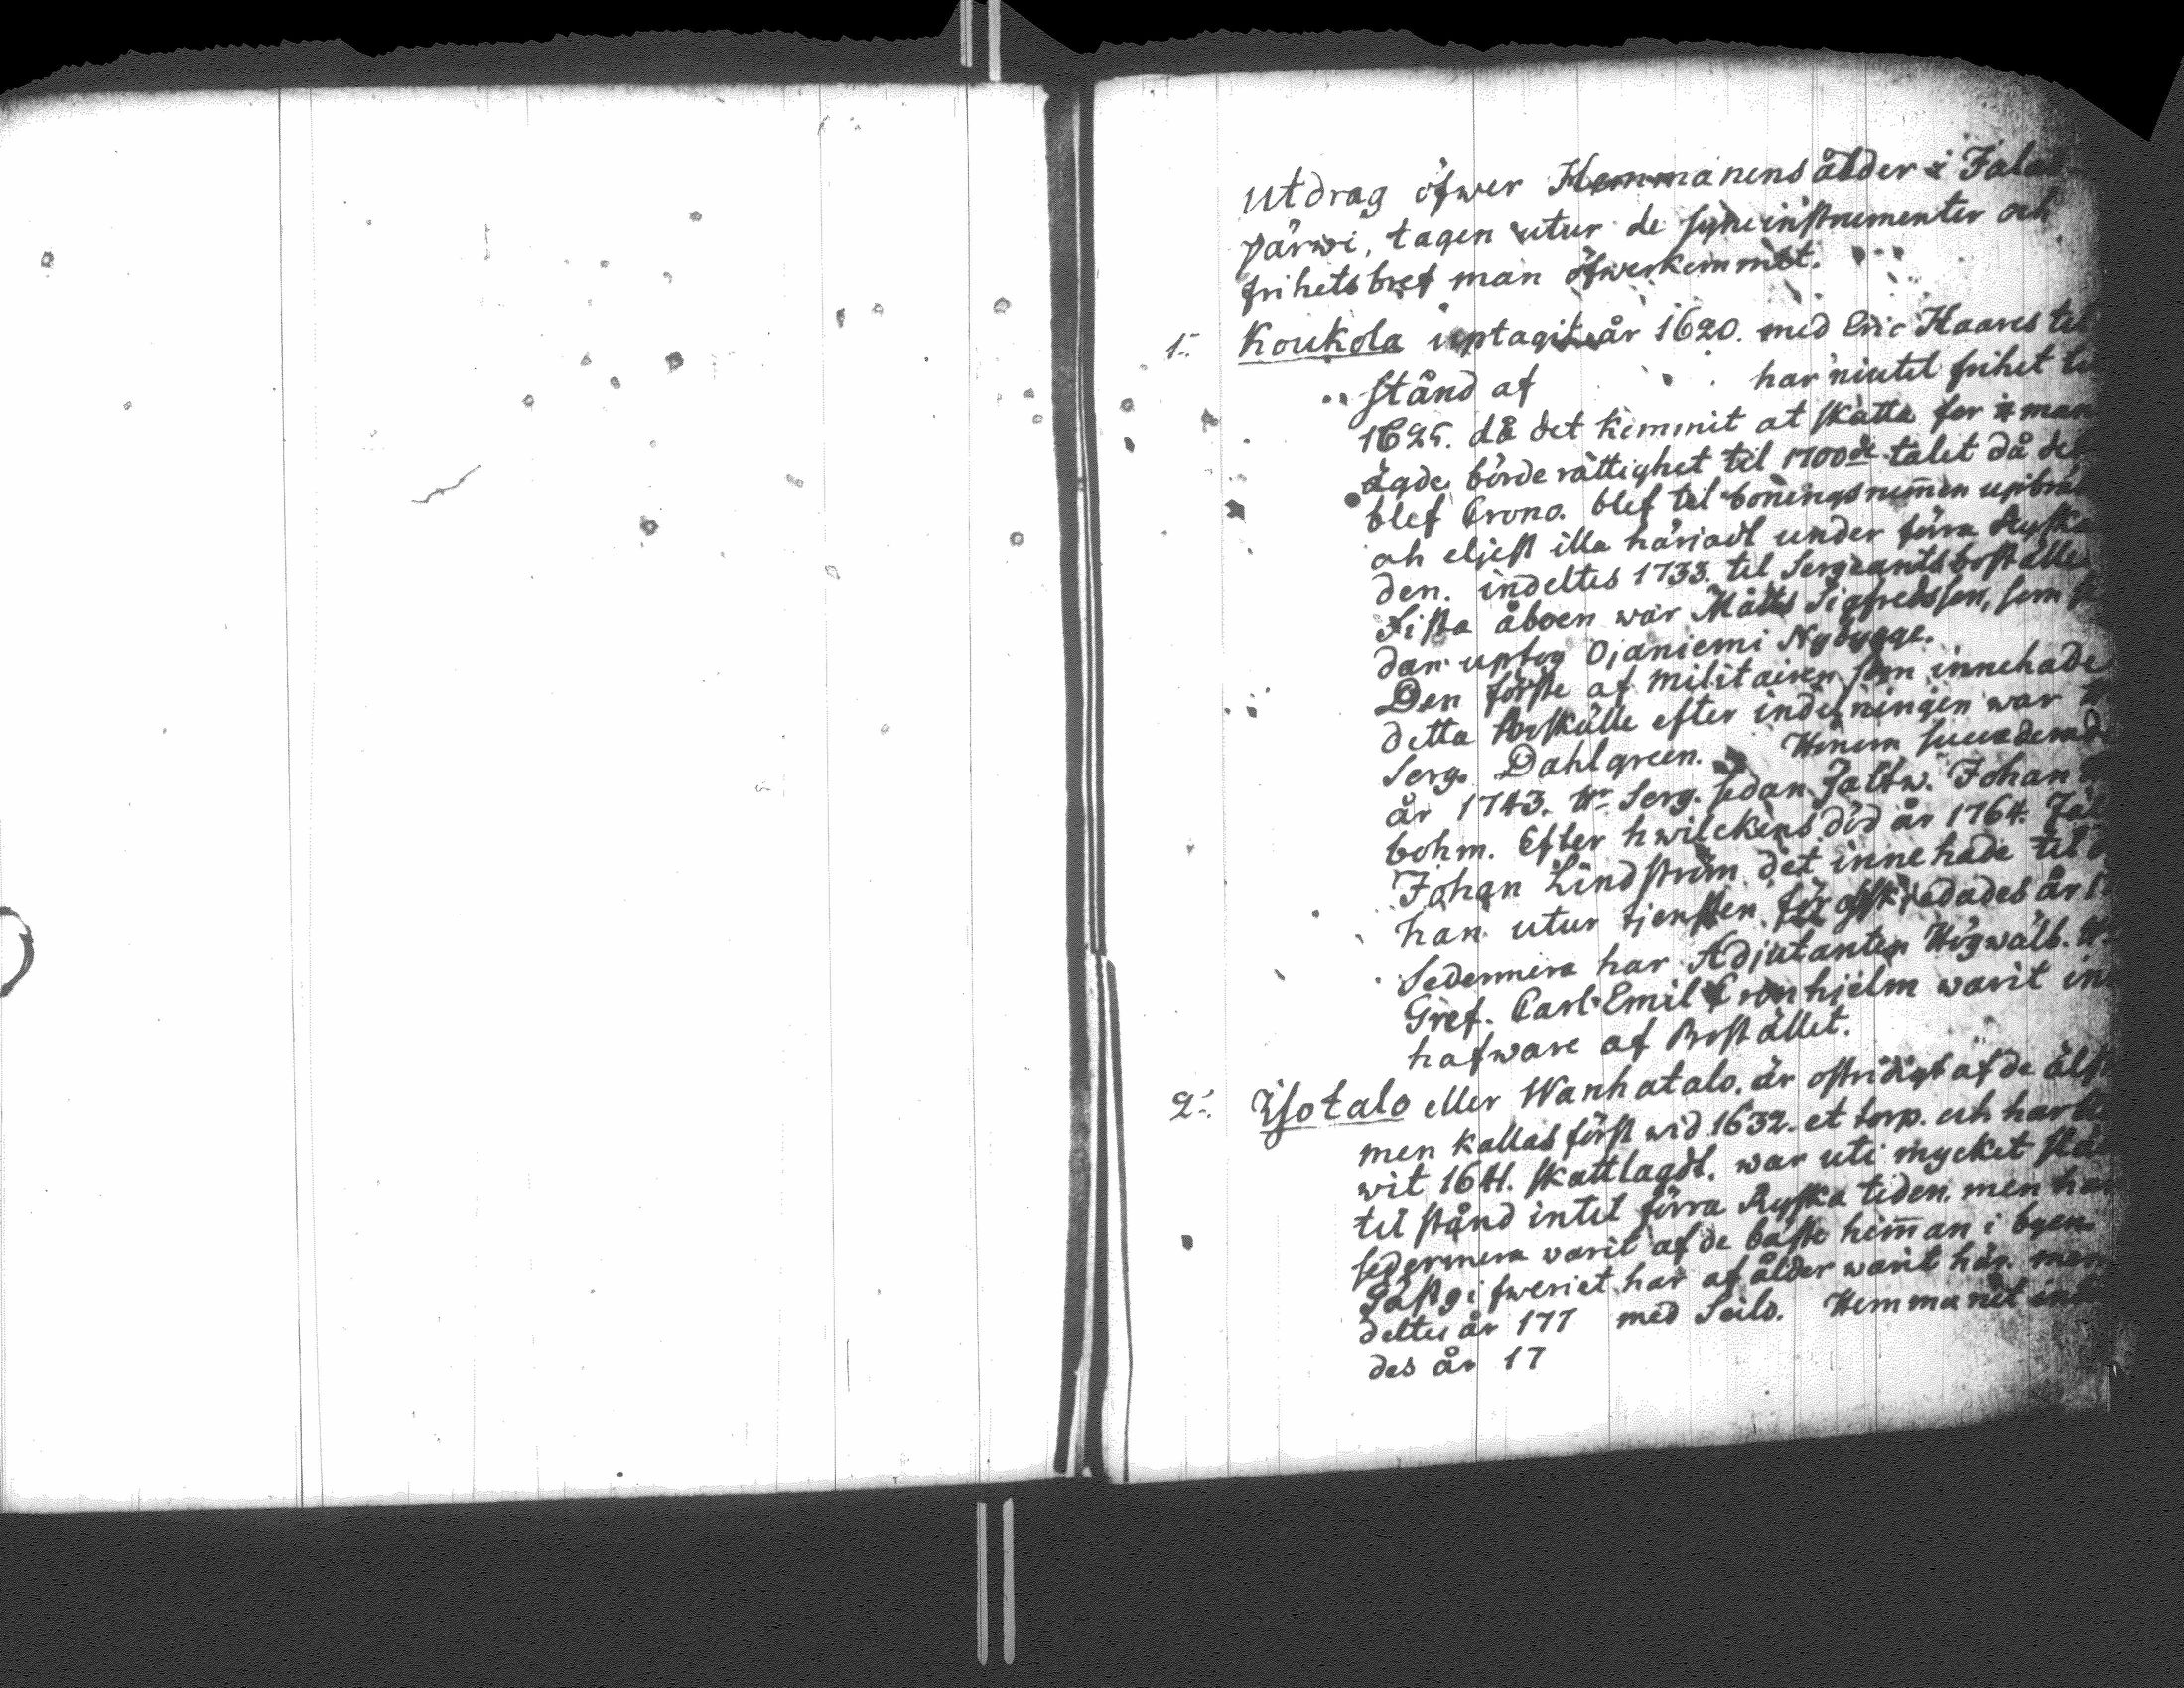 Utdrag öfwer Hemmanens ålder i Jalas
järwi, tagen utur de syneinstrumenter och
frihetsbref man öfwerkommit.
1:. Koukola uptagit år 1620. med Eric Haares til
stånd af har niutit frihet til
1625. då det kommit at skatta for man
ägde börderättighet til 1700de talet då det
blef Crono. blef til boningsrum̄en
och eljest illa härjadt under förra Ryska
den. indeltes 1733. til Sergeantsboställe
Sista åboen war Matts Sigfredsson, som
dan uptog Ojaniemi Nybygge.
Den förste af militairen som innehade
detta Boställe efter indelningen war
Serg. Dahlgreen. Honom succederade
år 1743. Hr Serg. sedan Fältw. Johan
bohm. Efter hwilckens död år 1764.
Johan Lindström det innehade til
han utur tjensten afskjedades år
Sedermera har Adjutanten Högwall.
Gref. Carl Emil Cronhjelm warit in
hafware af Bostället.
2:. Isotalo eller Wanhatalo. är ostridigt af de älst
men kallas först wid 1632. et torp. och har
wit 1641. skattlagdt. war uti mycket
til stånd intil förra Ryska tiden. men har
sedermera varit af de bäste hem̄an i byen.
Gästgifweriet har af ålder warit här. men
deltes år 177 med Seilo. Hemmanet
des år 17